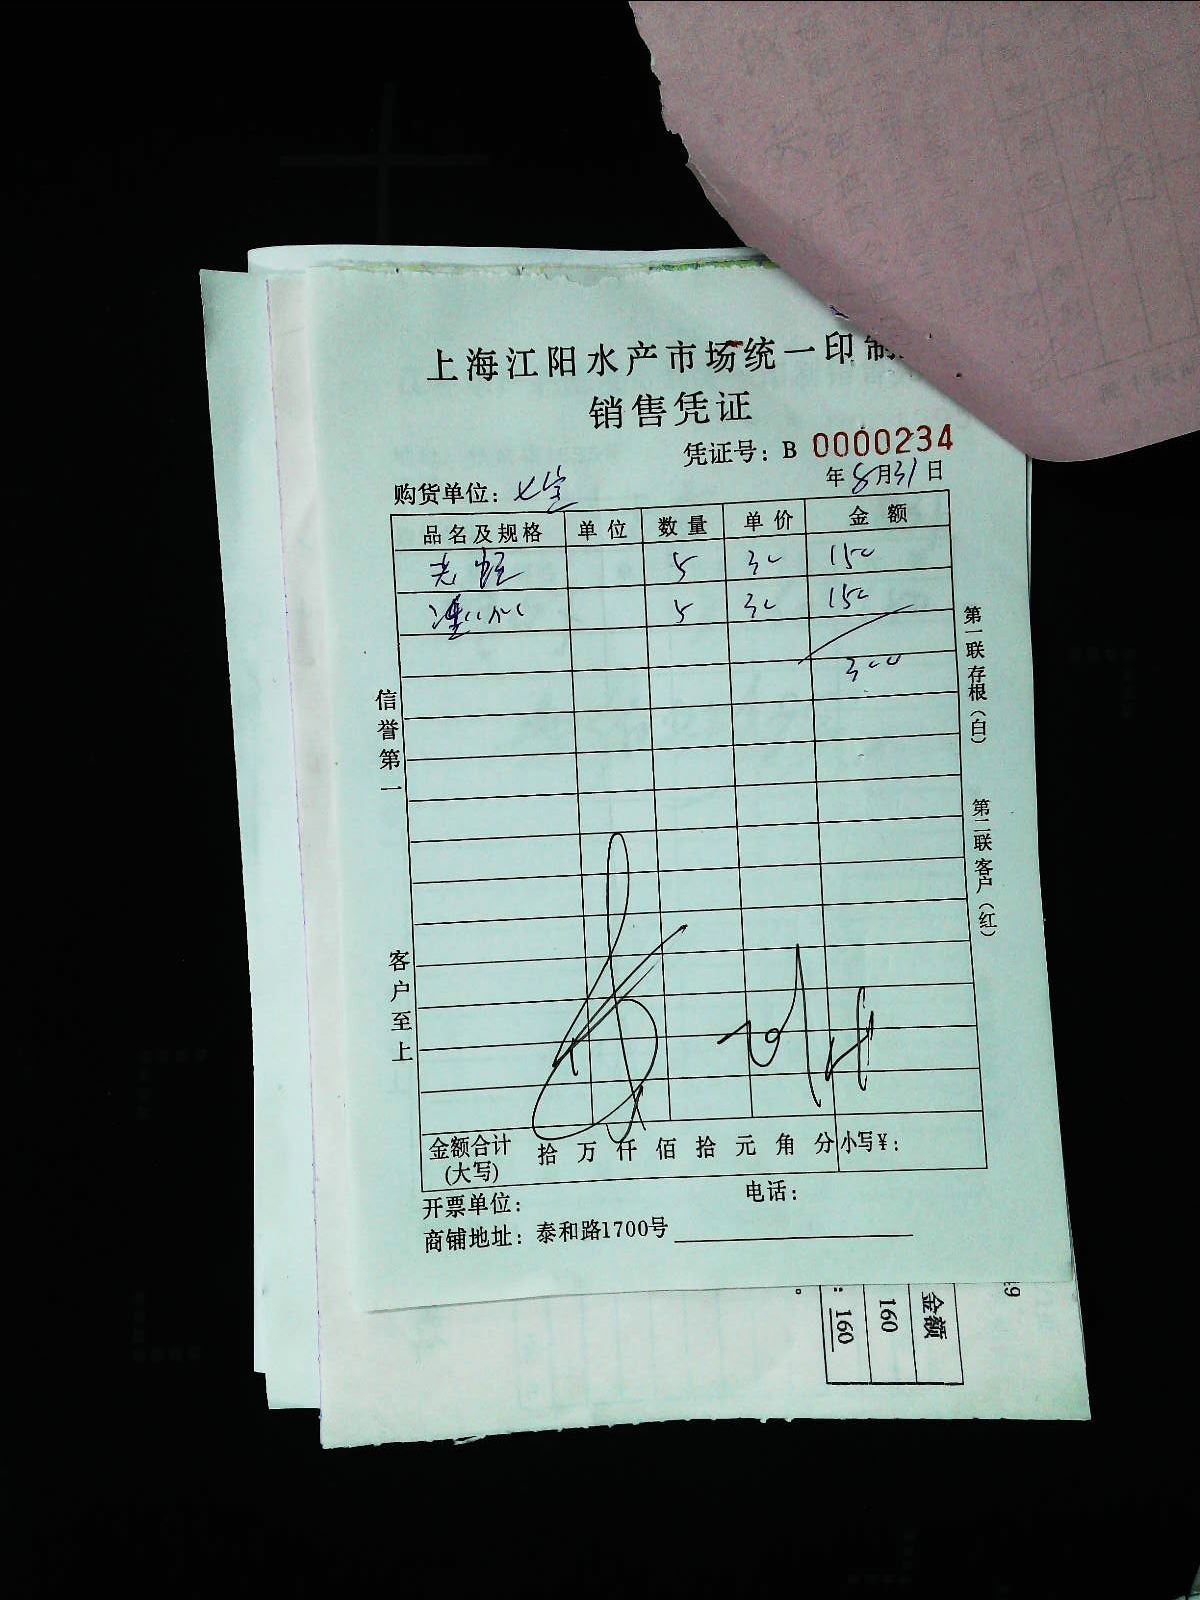 上海江阳水产市场统一印制
销售凭证
凭证号：B 0000234
年8月31日
购货单位：七宝
品名及规格 单位 数量 单价 金额
5 30 150
5 30 150
300
信誉第一
客户至上
第一联存根（白）
第二联客户（红）
金额合计（大写） 拾 万 仟 佰 拾 元 角 分 小写¥：
开票单位： 电话：
商铺地址：泰和路1700号
金额
160
：160